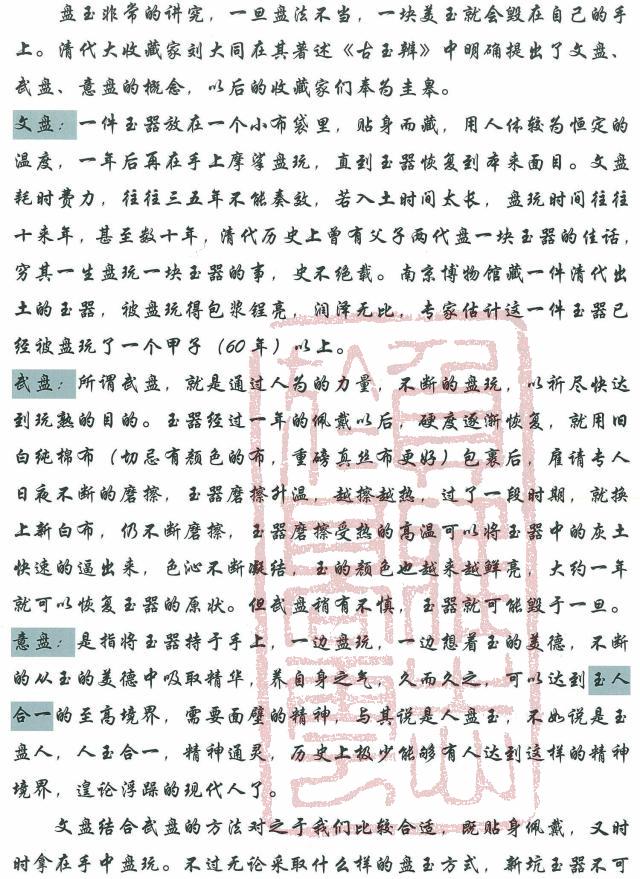 盘玉非常的讲究，一旦盘法不当，一块美玉就会毁在自己的手
上。清代大收藏家刘大同在其著述《古玉辨》中明确提出了文盘、
武盘、意盘的概念，以后的收藏家们奉为圭皋。
文盘：一件玉器放在一个小布袋里，贴身而藏，用人体较为恒定的
温度，一年后再在手上摩挲盘玩，直到玉器恢复到本来面目。文盘
耗时费力，往往三五年不能奏效，若入土时间太长，盘玩时间往往
十来年，甚至数十年，清代历史上曾有父子两代盘一块玉器的佳话，
穷其一生盘玩一块玉器的事，史不绝载。南京博物馆藏一件清代出
土的玉器，被盘玩得包浆锃亮，润泽无比，专家估计这一件玉器已
经被盘玩了一个甲子（60年）以上。
武盘：所谓武盘，就是通过人为的力量，不断的盘玩，以祈尽快达
到玩熟的目的。玉器经过一年的佩戴以后，硬度逐渐恢复，就用旧
白纯棉布（切忌有颜色的布，重磅真丝布更好）包裹后，雇请专人
日夜不断的磨擦，玉器磨擦升温，越擦越热，过了一段时期，就换
上新白布，仍不断磨擦，玉器磨擦受热的高温可以将玉器中的灰土
快速的逼出来，色沁不断凝结，玉的颜色也越来越鲜亮，大约一年
就可以恢复玉器的原状。但武盘稍有不慎，玉器就可能毁于一旦。
意盘：是指将玉器持于手上，一边盘玩，一边想着玉的美德，不断
的从玉的美德中吸取精华，养自身之气，久而久之，可以达到玉人
合一的至高境界，需要面壁的精神，与其说是人盘玉，不如说是玉
盘人，人玉合一，精神通灵，历史上极少能够有人达到这样的精神
境界，遑论浮躁的现代人了。
文盘结合武盘的方法对之于我们比较合适，既贴身佩戴，又时
时拿在手中盘玩。不过无论采取什么样的盘玉方式，新坑玉器不可